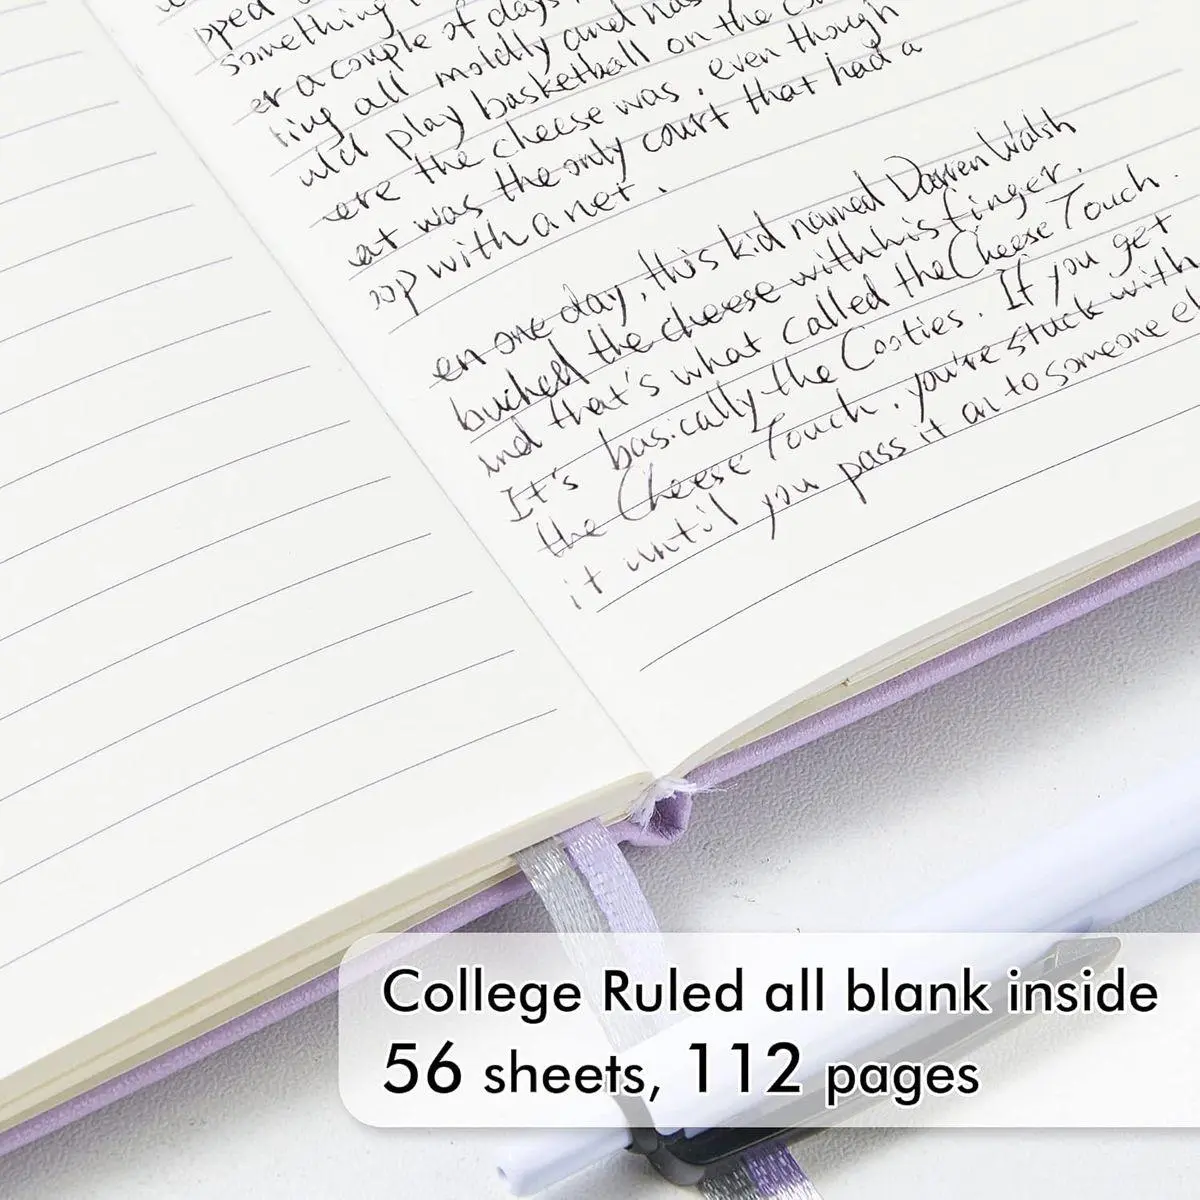 pped
something
er a couple of days,
ting all moldly and has
uld play basketball on the co
ere the cheese was, even though
at was the only court that had a
oop with a net.
en one day, this kid named Darren Walsh
buched the cheese with his finger.
and that's what called the Cheese Touch.
It's basically the Cooties. If you get
the Cheese Touch, you're stuck with
it until you pass it on to someone el
College Ruled all blank inside
56 sheets, 112 pages